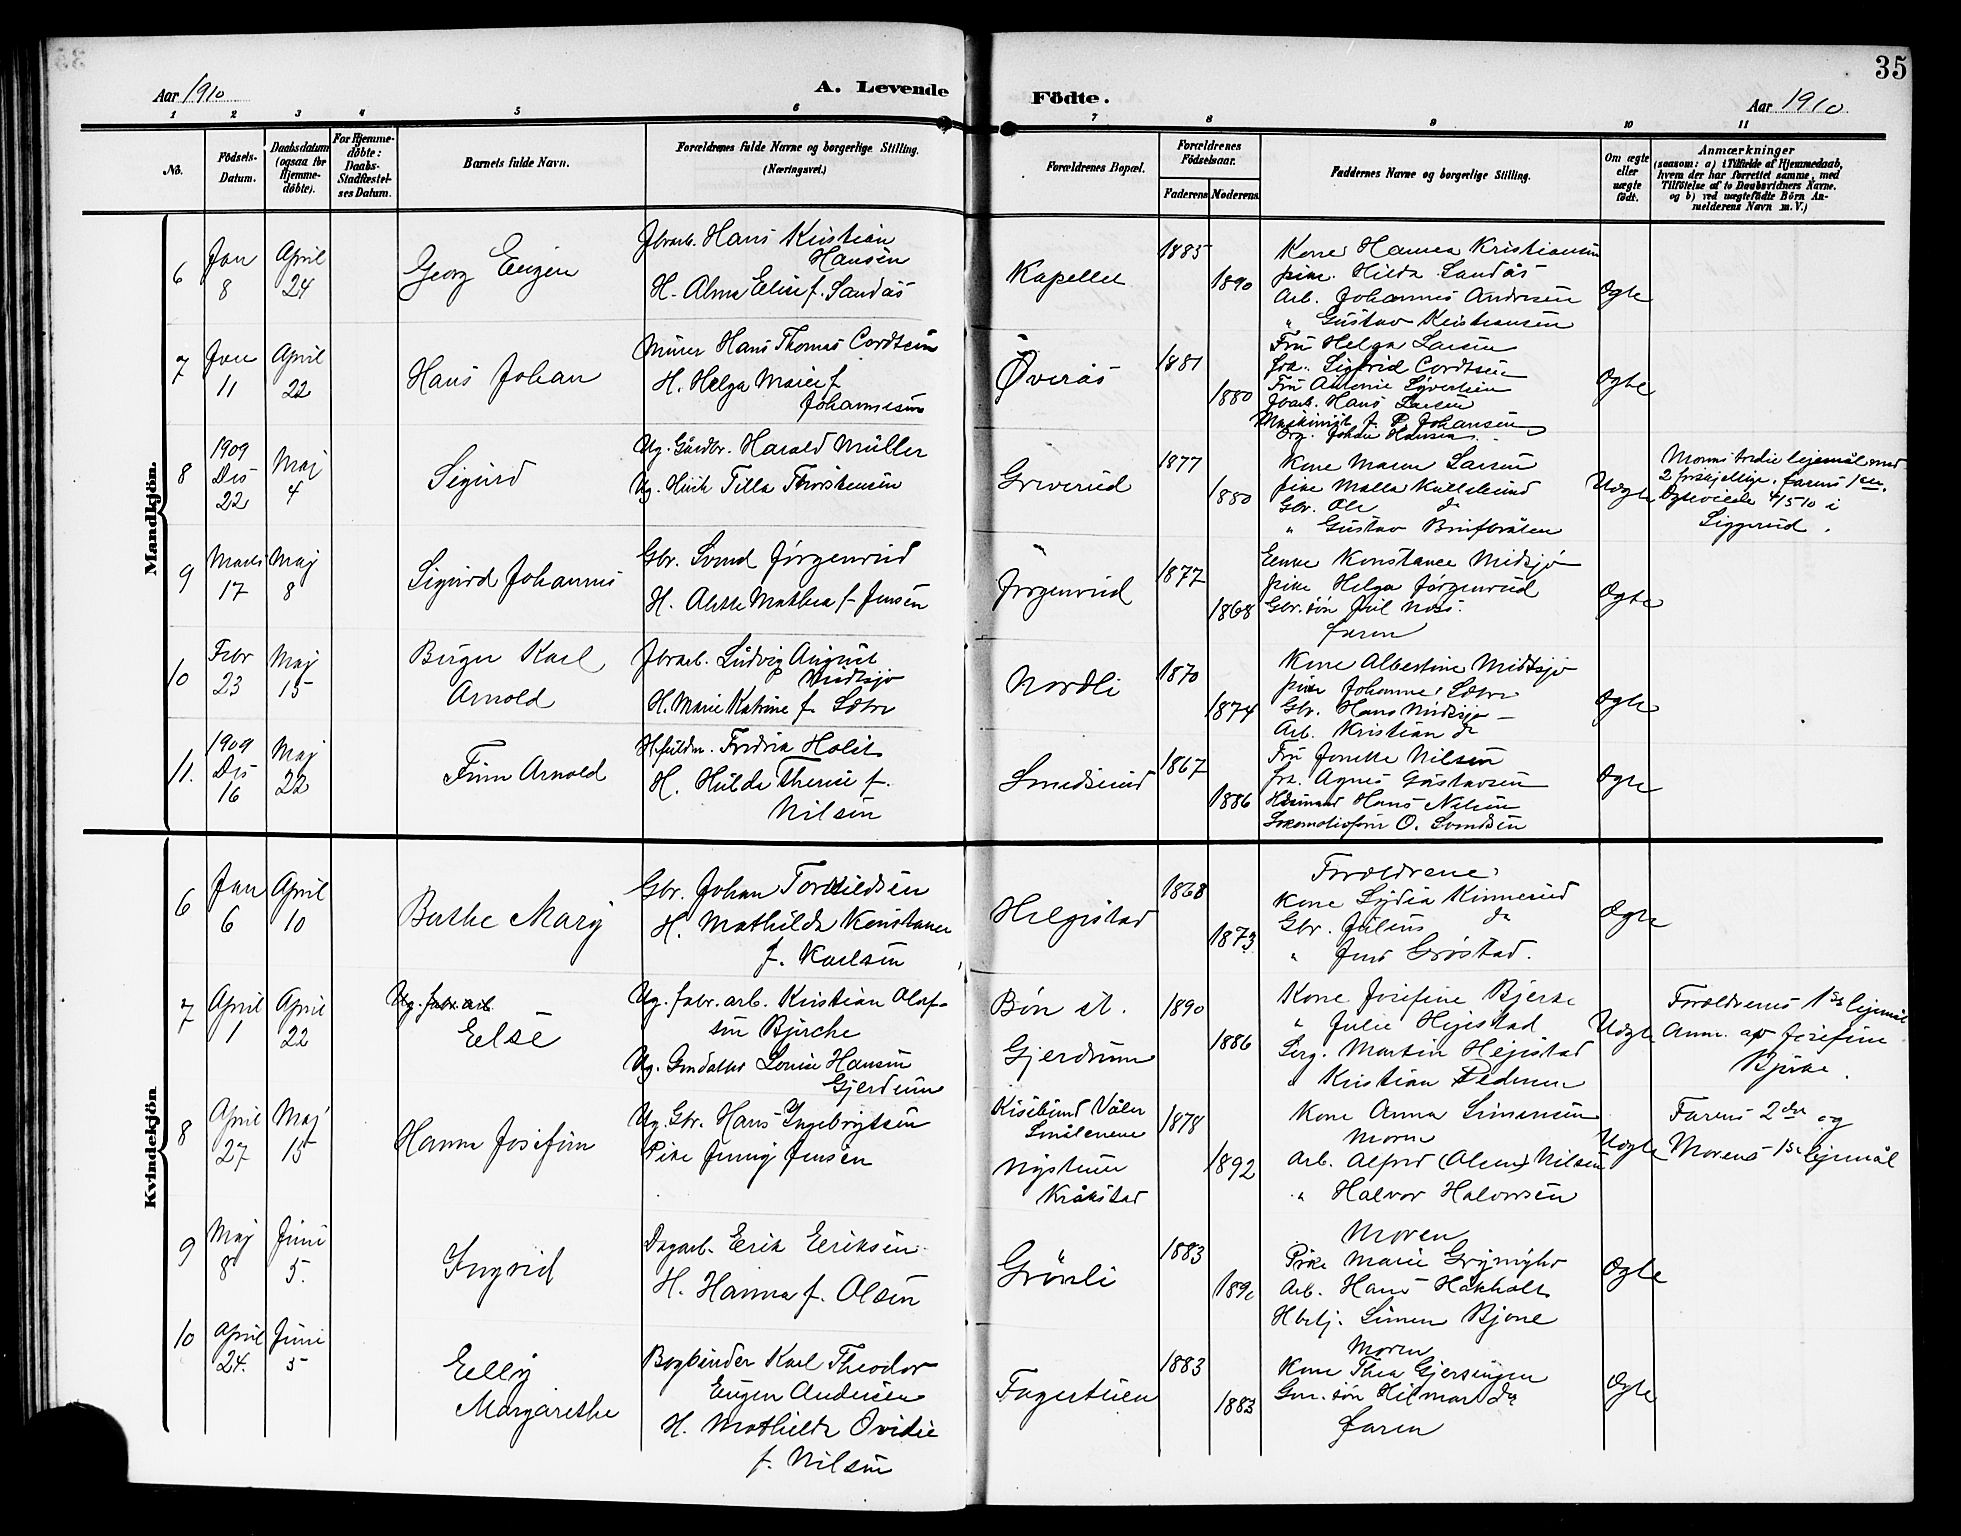 35
Aar 1910
A. Levende Födte.
Aar 1910
1 2 3 4 5 6 7 8 9 10 11
No.
Födsels-
Datum.
Daabsdatum
(ogsaa for
Hjemme-
døbte).
For Hjemme-
döbte:
Daabs-
Stadfæstel-
ses Datum.
Barnets fulde Navn.
Forældrenes fulde Navne og borgerlige Stilling.
(Næringsvei.)
Forældrenes Bopæl.
Forældrenes
Födselsaar.
Faderens
Moderens
Faddernes Navne og borgerlige Stilling.
Om ægte
eller
uægte
födt.
Anmærkninger
(saasom: a) i Tilfælde af Hjemmedaab,
hvem der har forrettet samme, med
Tilföielse af to Daabsvidners Navne.
og b) ved uægtefödte Börn An-
melderens Navn m. V.)
Mandkjön.
6
Jan
8
April
24
Georg Eugen
Fbrarb. Hans Kristian
Hansen
H. Alma Elise f. Sandås
Kapellet
1885
1890
Kone Hanna Kristiansen
pike Hilda Sandås
Arb. Johannes Andresen
" Gustav Kristiansen
Ægte
7
Jan
11
April
22
Hans Johan
Murer Hans Thomas Cordtsen
H. Helga Marie f.
Johannesen
Øverås
1881
1880
Fru Helga Larsen
frk. Sigfrid Cordtsen
Fru Antonie Syvertsen
Fbrarb. Hans Larsen
Maskinist J. P. Johansen
Johan Hansen
Ægte
8
1909
Des
22
Maj
4
Sigurd
Ug. Gårdbr. Harald Müller
Ug. Hush. Tilla Thorstensen
Greverud
1877
1880
Kone Maren Larsen
pike Malla Kullebund
Gbr. Ole do
" Gustav Bruflåten
Uægte
Morens tredie lejemål med
2 forskjellige. farens 1ste.
Ægteviede 4/5 10 i
Siggerud.
9
Marts
17
Maj
8
Sigurd Johannes
Gbr. Svend Jørgenrud
H. Alette Mathea f. Jensen
Jørgenrud
1877
1868
Enke Konstance Midsjø
pike Helga Jørgenrud
Gbr. søn Juul Moss.
faren
Ægte
10
Febr
23
Maj
15
Birger Karl
Arnold
Fbrarb. Ludvig August
Midtsjø
H. Marie Katrine f. Sætre
Nordli
1870
1874
Kone Albertine Midtsjø
pike Johanne Sætre
Gbr. Hans Midtsjø
Arb. Kristian do
Ægte
11.
1909
Des
16
Maj
22
Finn Arnold
H. fuldm. Fredrik Holst
H. Hulda Therese f.
Nilsen
Smedsrud
1867
1886
Fru Jonette Nilsen
frk. Agnes Gustavsen
Hans Nilsen
O. Svendsen
Ægte
Kvindekjön
6
Jan
6
April
10
Borthe Mary
Gbr. Johan Torkildsen
H. Mathilde Konstance
f. Karlsen
Helgestad
1868
1873
Forældrene.
Kone Lydia Kinnerud
Gbr. Julius do
" Jens Grøstad.
Ægte
7
April
1
April
22
Ug. fabr. arb.
Else
Ug. fabr. arb. Kristian Olaf-
sen Bjerke
Ug. Gmdatter Louise Hansen
Gjerdrum
Bøn st.
Gjerdrum
1890
1886
Kone Josefine Bjerke
" Julie Hejestad
Serg. Martin Hejestad
" Kristian Pedersen
Uægte
Forældrenes 1ste lejemål
Anm. av Josefine
Bjerke.
8
April
27
Maj
15
Hanna Josefine
Ug. Gbr. Hans Ingebrigtsen
Pike Jenny Jensen
Kisebund Våler
Smålenene
Nystuen
Kråkstad
1878
1892
Kone Anna Simensen
Moren
Arb. Alfred (Olsen) Nilsen
" Halvor Halvorsen
Uægte
Farens 2det og
Morens 1ste lejemål
9
Maj
8
Juni
5.
Ingrid
Dagarb. Erik Eriksen
H. Hanna f. Olsen
Grønli
1883
Moren
Pike Marie
Arb. Hans Hakholt
Simen Bjone
Ægte
10
April
24.
Juni
5
Elly
Margarethe
Bogbinder Karl Theodor
Eugen Andersen
H. Mathilde Ovidie
f. Nilsen
Fagertuen
1883
1883
Moren
Kone Thea Gjersingen
Gm. søn Hilmar do
faren
Ægte